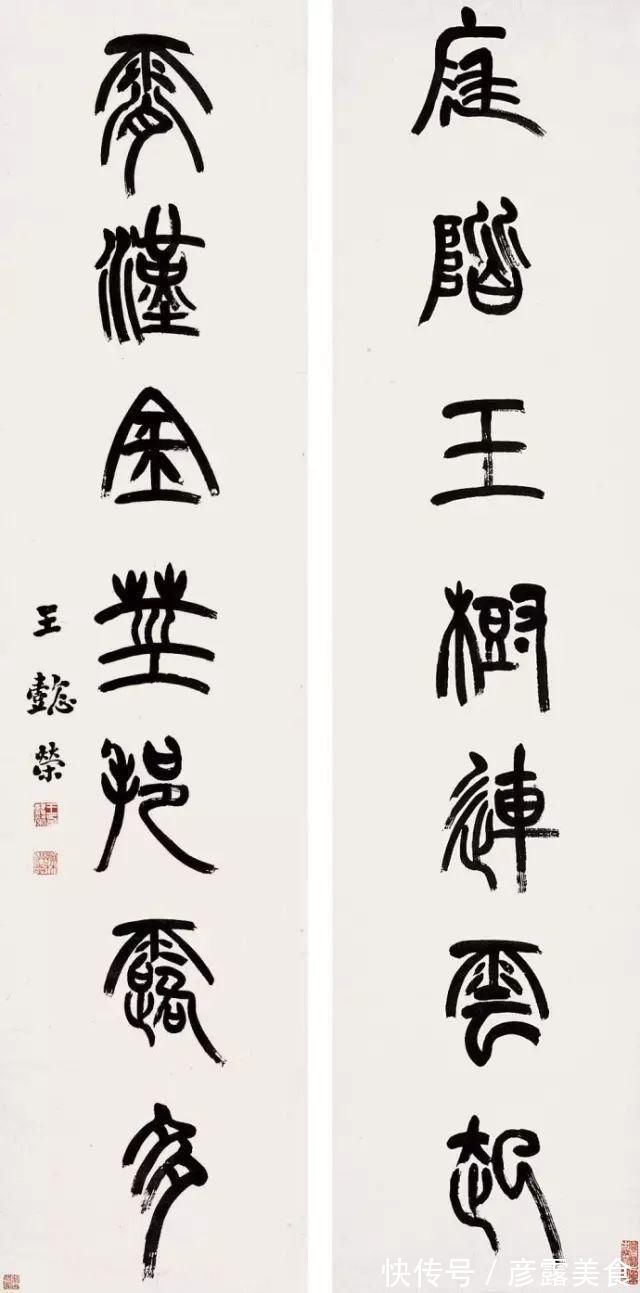 庭階玉樹連雲起
霄漢金莖挹露多
王懿榮
快传号 / 彦露美食